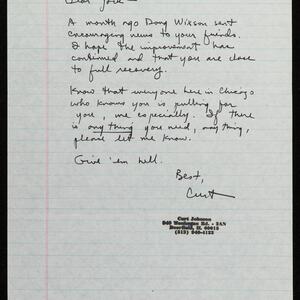 Dear Jack —
A month ago Doug Wixson sent
encouraging news to your friends.
I hope the improvement has
continued and that you are close
to full recovery.
Know that everyone here in Chicago
who knows you is pulling for
you, me especially. If there
is anything you need, anything,
please let me know.
Give 'em hell.
Best,
Curt
Curt Johnson
Deerfield, IL 60015